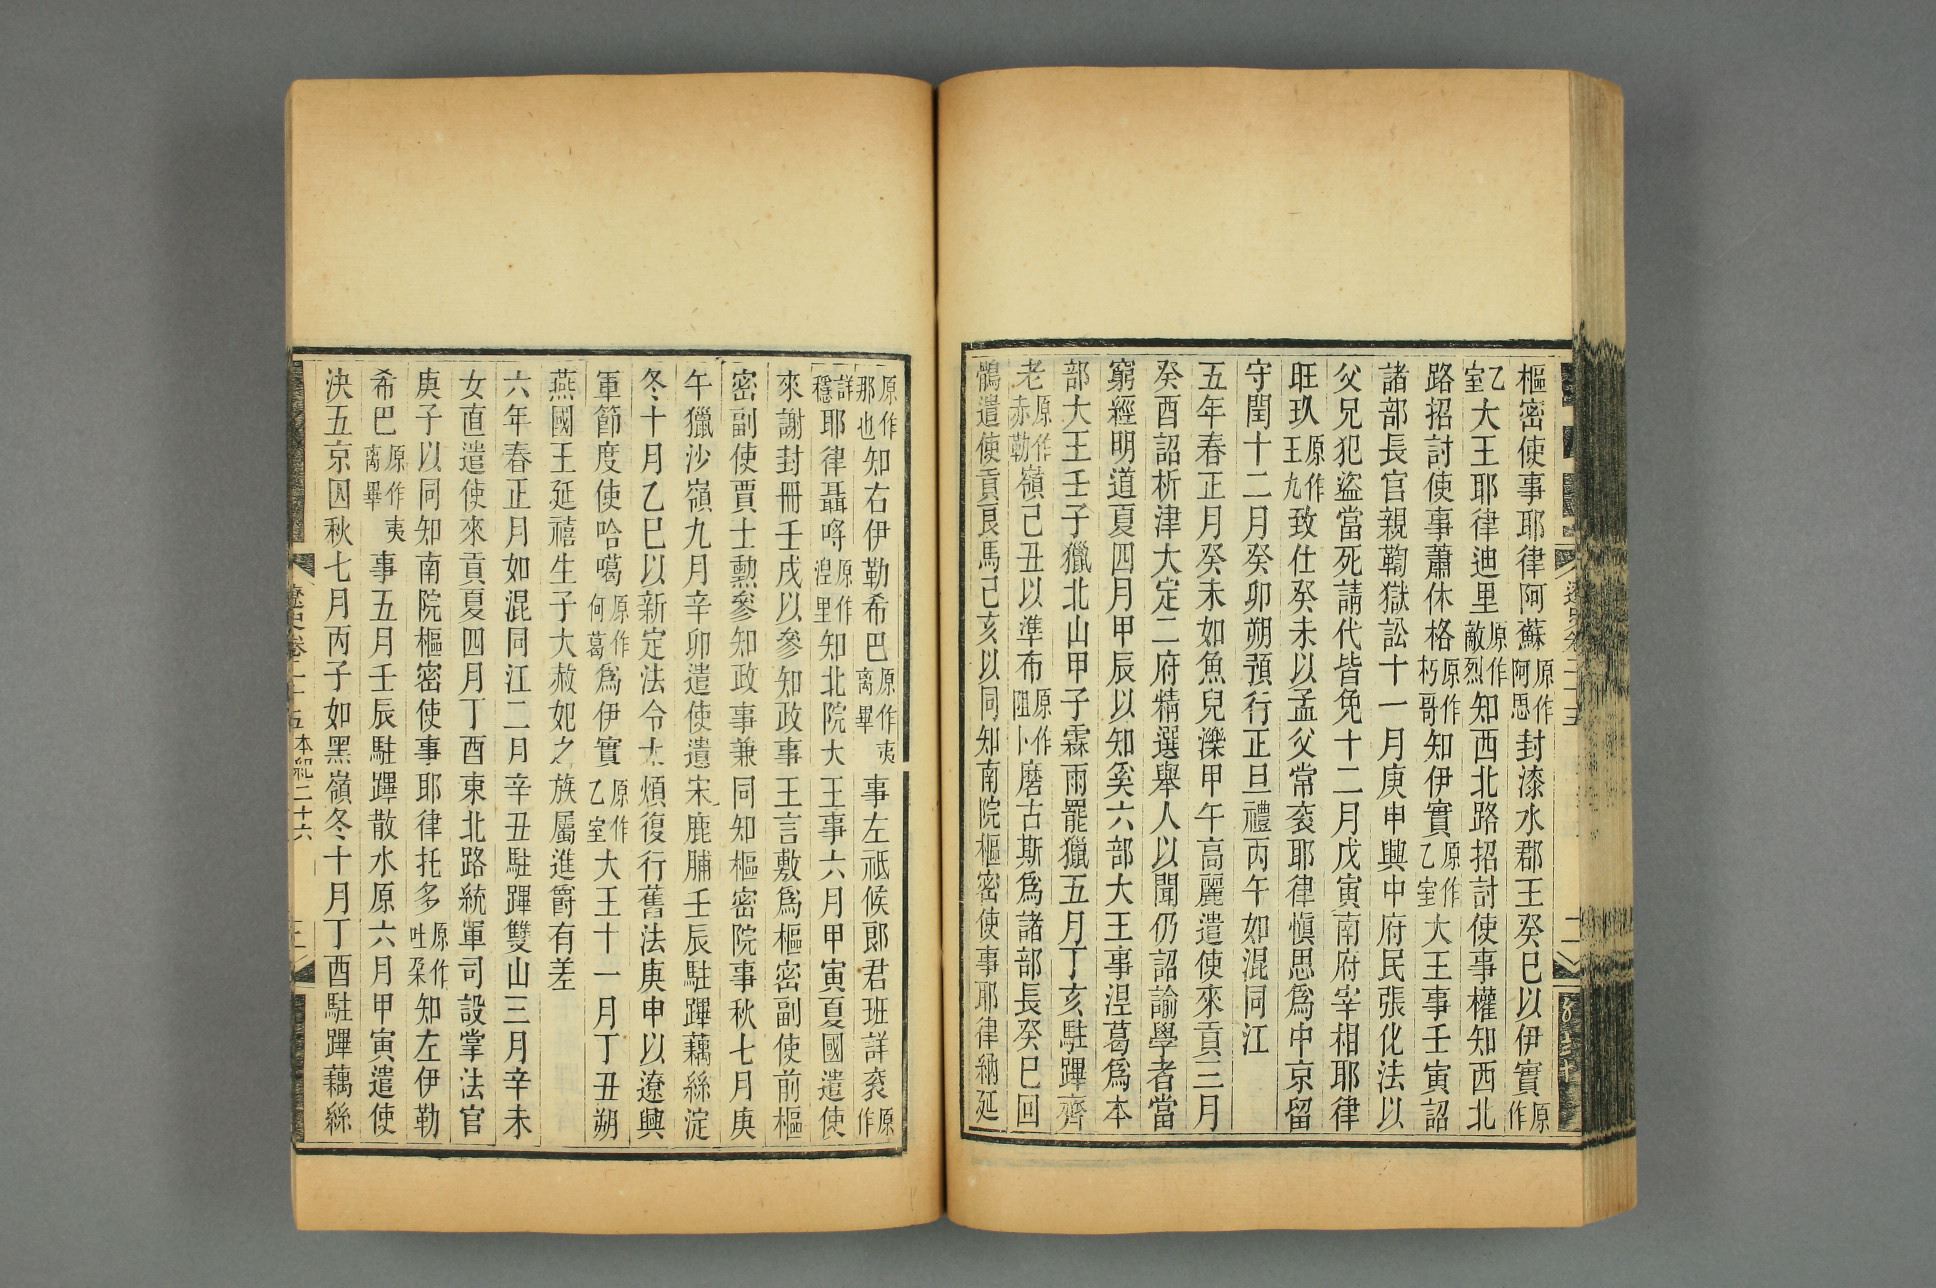 樞密使事耶律阿蘇原作阿思封漆水郡王癸巳以伊實原作
乙室大王耶律迪里原作敵烈知西北路招討使事權知西北
路招討使事蕭休格原作朽哥知伊實原作乙室大王事壬寅詔
諸部長官親鞫獄訟十一月庚申興中府民張化法以
父兄犯盜當死請代皆免十二月戊寅南府宰相耶律
旺玖原作王九致仕癸未以孟父常袞耶律慎思爲中京留
守閏十二月癸卯朔預行正旦禮丙午如混同江
五年春正月癸未如魚兒濼甲午高麗遣使來貢三月
癸酉詔析津大定二府精選舉人以聞仍詔諭學者當
窮經明道夏四月甲辰以知奚六部大王事涅葛爲本
部大王壬子獵北山甲子霖雨罷獵五月丁亥駐蹕齊
老原作赤勒嶺己丑以準布原作阻卜磨古斯爲諸部長癸巳回
鶻遣使貢良馬己亥以同知南院樞密使事耶律納延
原作那也知右伊勒希巴原作夷离畢事左祗候郎君班詳袞原作
詳穩耶律聶哷原作湼里知北院大王事六月甲寅夏國遣使
來謝封冊壬戌以參知政事王言敷爲樞密副使前樞
密副使賈士勳參知政事兼同知樞密院事秋七月庚
午獵沙嶺九月辛卯遣使遺宋鹿脯壬辰駐蹕藕絲淀
冬十月乙巳以新定法令太煩復行舊法庚申以遼興
軍節度使哈噶原作何葛爲伊實原作乙室大王十一月丁丑朔
燕國王延禧生子大赦妃之族屬進爵有差
六年春正月如混同江二月辛丑駐蹕雙山三月辛未
女直遣使來貢夏四月丁酉東北路統軍司設掌法官
庚子以同知南院樞密使事耶律托多原作吐朶知左伊勒
希巴原作夷离畢事五月壬辰駐蹕散水原六月甲寅遣使
決五京囚秋七月丙子如黑嶺冬十月丁酉駐蹕藕絲
遼史卷二十五 本紀二十六 二